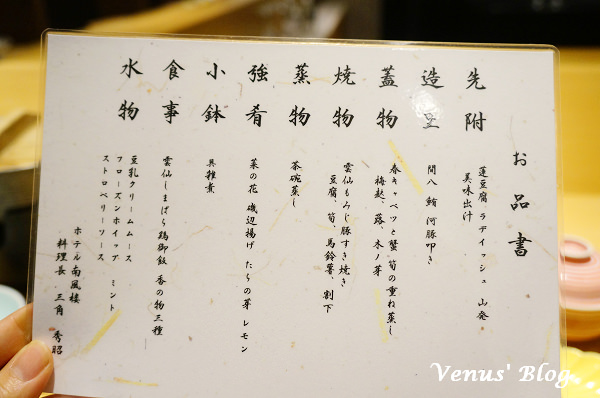 お品書
先附
蓮豆腐 ラディッシュ 山葵
美味出汁
造里
間八 鮪 河豚叩き
蓋物
春キャベツと蟹、筍の重ね蒸し
梅麩、蕗、木ノ芽
焼物
雲仙もみじ豚すき焼き
豆腐、筍、馬鈴薯、割下
蒸物
茶碗蒸し
強肴
菜の花 磯辺揚げ たらの芽 レモン
小鉢
具雑煮
食事
雲仙しまばら鶏御飯 香の物三種
水物
豆乳クリームムース
フローズンホイップ ミント
ストロベリーソース
ホテル南風楼
料理長 三角 秀昭
Venus' Blog